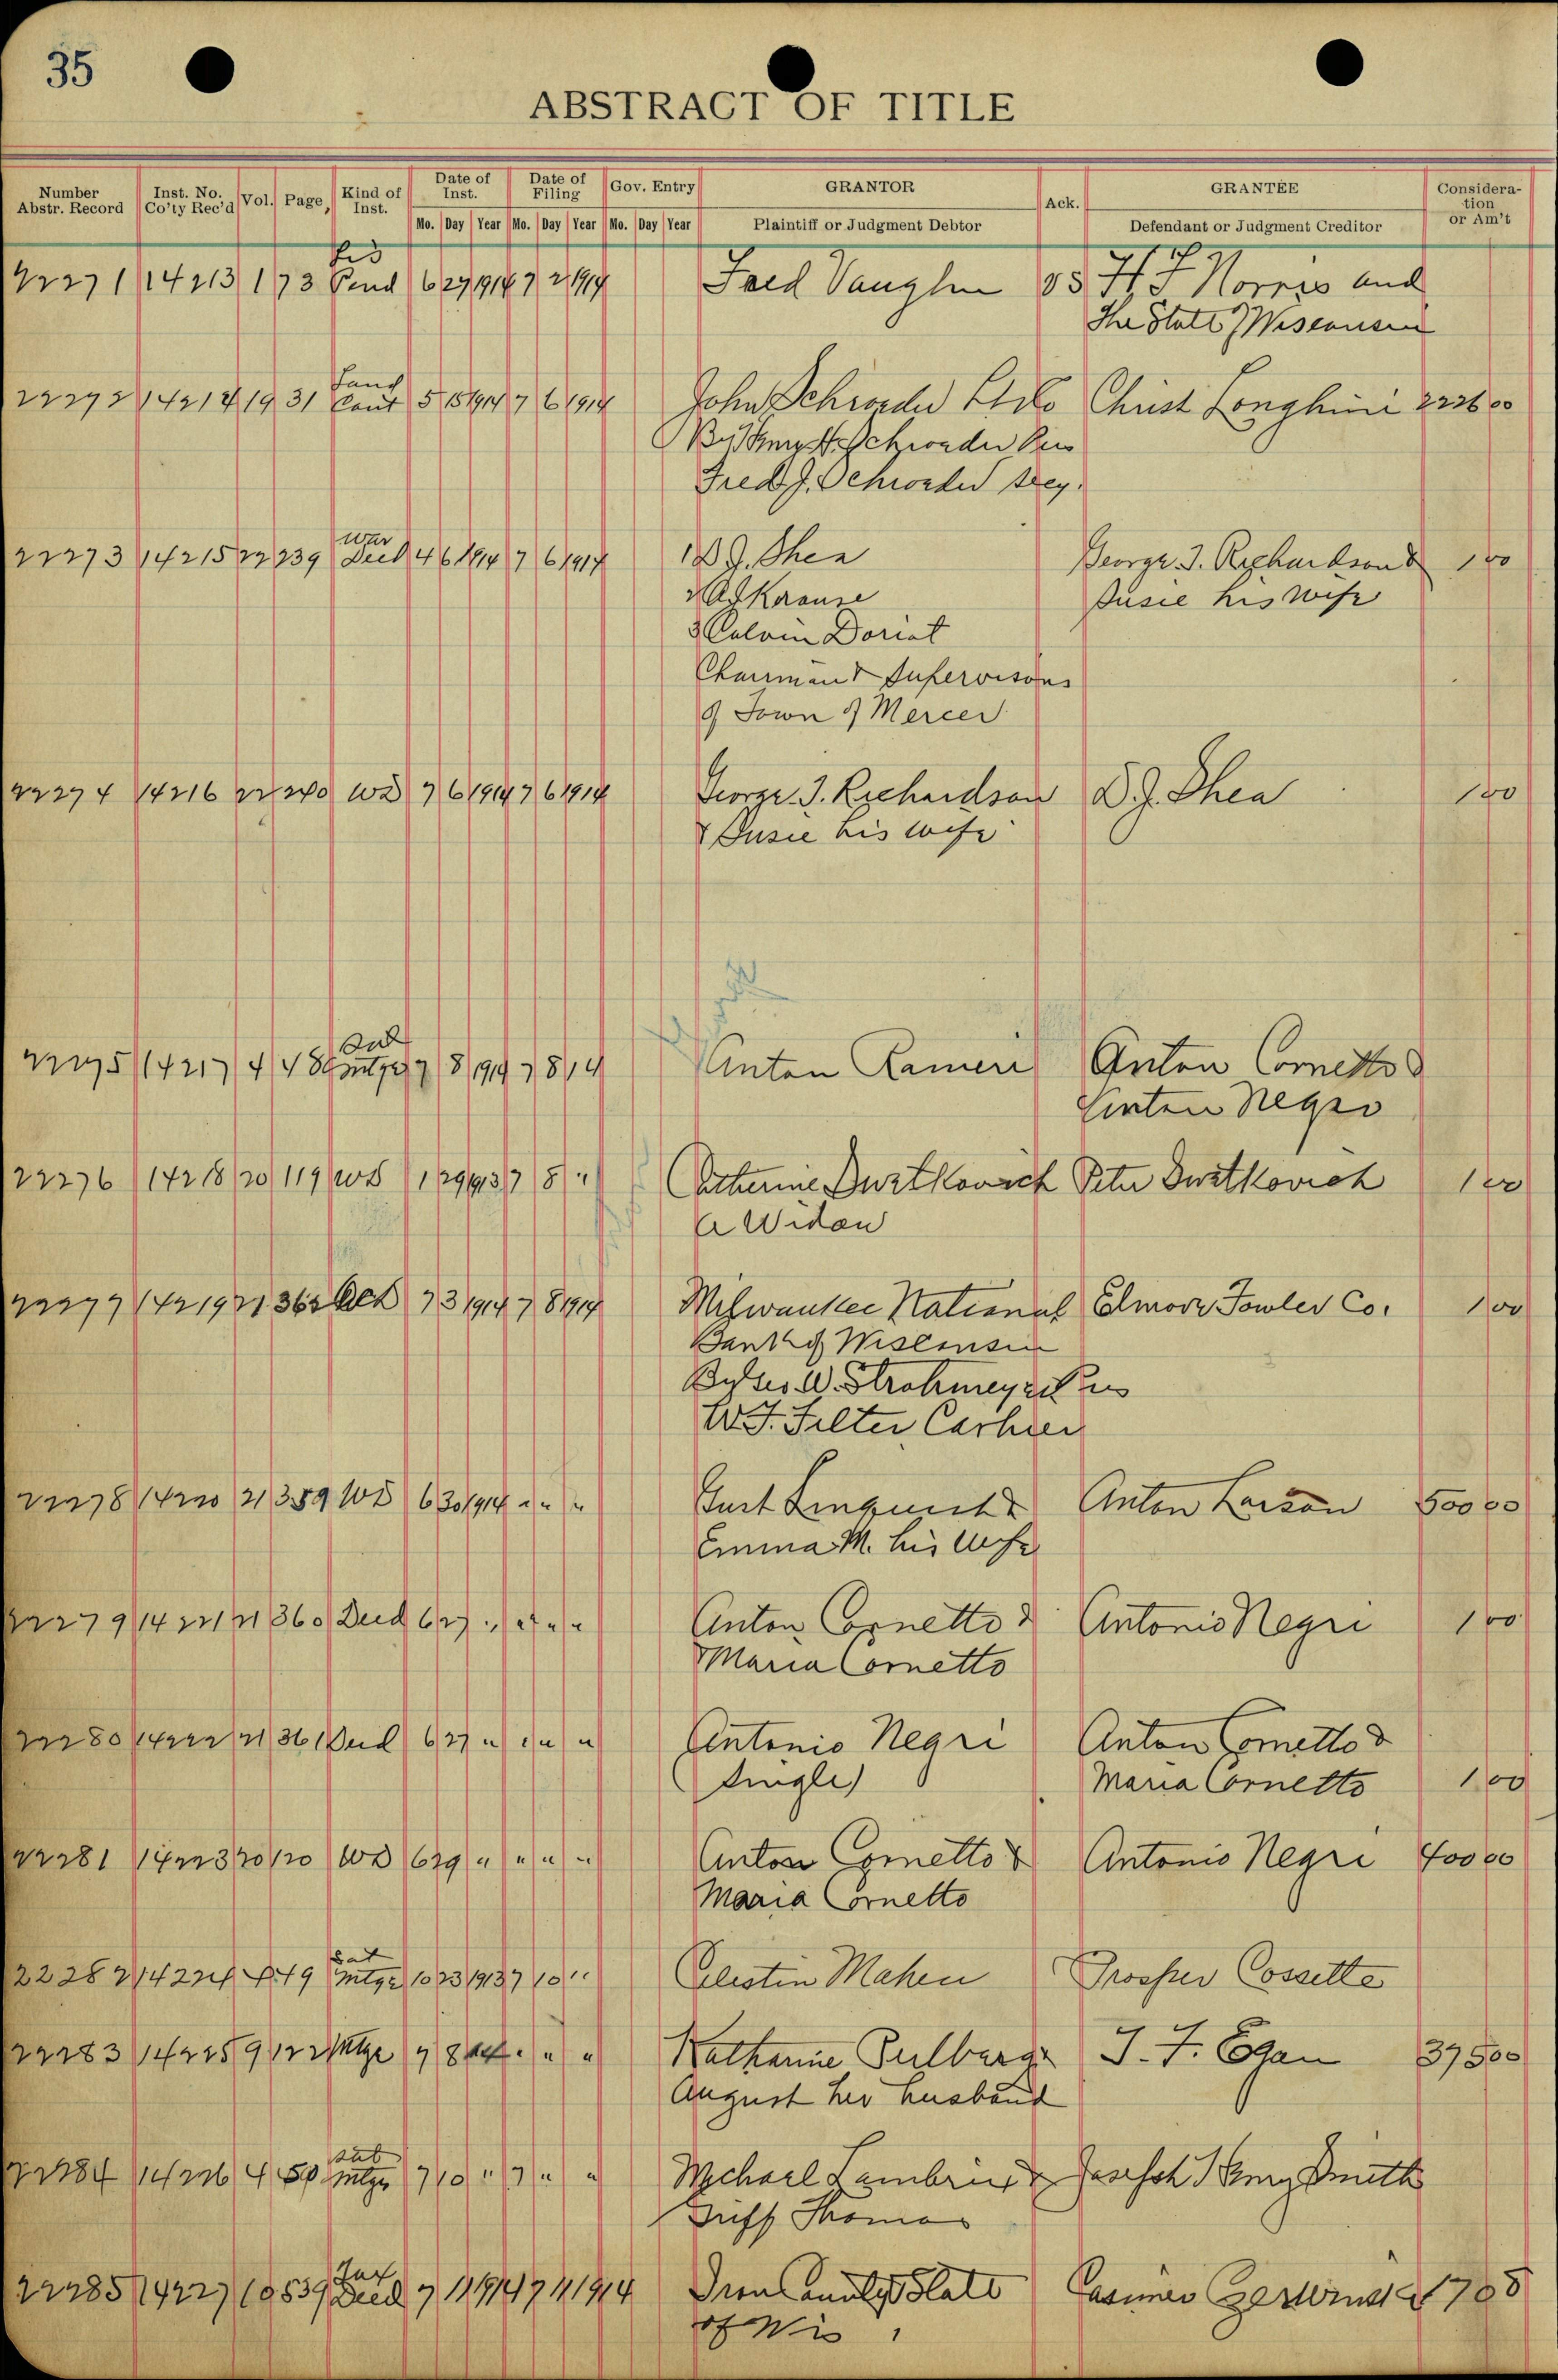 35
ABSTRACT OF TITLE
Number Abstr. Record Inst. No. Co'ty Rec'd Vol. Page Kind of Inst. Date of Inst. Date of Filing Gov. Entry GRANTOR Ack. GRANTEE Consideration or Am't
Mo. Day Year Mo. Day Year Mo. Day Year Plaintiff or Judgment Debtor Defendant or Judgment Creditor
Lis
22271 14213 1 73 Pend 6 27 1914 7 2 1914 Fred Vaughn vs H. F. Norris and
The State of Wisconsin
Land
22272 14214 19 31 Cont 5 15 1914 7 6 1914 John Schroeder L Co Christ Longhini
By Henry H. Schroeder Pres
Fred J. Schroeder Secy.
War
22273 14215 22 239 Deed 4 6 1914 7 6 1914 1 D. J. Shea George I. Richardson & 1 00
2 Krause Susie his wife
3 Calvin Doriot
Chairman & Supervisors
of Town of Mercer
22274 14216 22 240 WD 7 6 1914 7 6 1914 George I. Richardson D. J. Shea 1 00
& Susie his wife
22275 14217 4 48 7 8 1914 7 8 14 Anton Rameri Anton Cornetto &
Anton Negro
22276 14218 20 119 WD 1 29 1913 7 8 " Catherine Peter 1 00
A Widow
22277 14219 21 362 7 3 1914 7 8 1914 Milwaukee National Elmore Fowler Co. 1 00
Bank of Wisconsin
W. Strohmeyer Pres
W. F. Filter Cashier
22278 14220 21 359 WD 6 30 1914 " " " Gust Linquist & Anton Larson 500 00
Emma M. his Wife
22279 14221 21 360 Deed 6 27 " " " " Anton Cornetto & Antonio Negri 1 00
Maria Cornetto
22280 14222 21 361 Deed 6 27 " " " " Antonio Negri Anton Cornetto &
(Single) Maria Cornetto 1 00
22281 14223 20 120 WD 6 29 " " " " Anton Cornetto & Antonio Negri 400 00
Maria Cornetto
Sat
22282 14224 4 49 Mtge 10 23 1913 7 10 " Celestin Mahen Prosper Cossette
22283 14225 9 122 Mtge 7 8 " " " Katharine J. F. Egan 375 00
August her husband
Sat
22284 14226 4 50 Mtge 7 10 " 7 " " Michael & Joseph Henry Smith
Thomas
Tax
22285 14227 10 539 Deed 7 11 1914 7 11 1914 Iron County State Casimer
of Wis